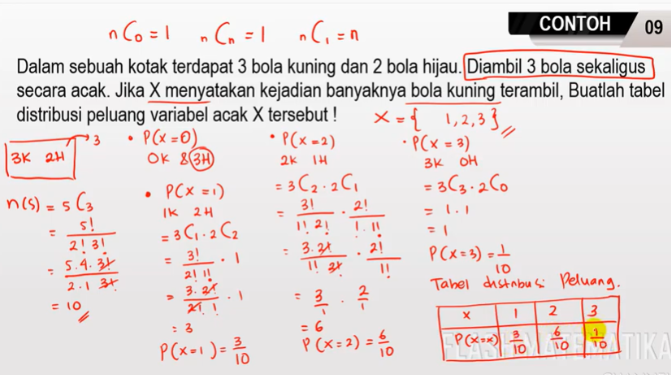 nC₀ = 1   nCₙ = 1   nC₁ = n
CONTOH 09
Dalam sebuah kotak terdapat 3 bola kuning dan 2 bola hijau. Diambil 3 bola sekaligus
secara acak. Jika X menyatakan kejadian banyaknya bola kuning terambil, Buatlah tabel
distribusi peluang variabel acak X tersebut !
X = { 1, 2, 3 }
3K 2H → 3
n(s) = 5C3
= 5! / 2! 3!
= 5.4.3! / 2.1 3!
= 10
• P(X=0)
0K & 3H
• P(X=1)
1K 2H
= 3C1 . 2C2
= 3! / 2! 1! . 1
= 3.2! / 2! 1 . 1
= 3
P(X=1) = 3/10
• P(X=2)
2K 1H
= 3C2 . 2C1
= 3! / 1! 2! . 2! / 1! 1!
= 3.2! / 1! 2! . 2! / 1!
= 3/1 . 2/1
= 6
P(X=2) = 6/10
• P(X=3)
3K 0H
= 3C3 . 2C0
= 1 . 1
= 1
P(X=3) = 1/10
Tabel distribusi Peluang.
X 1 2 3
P(X=x) 3/10 6/10 1/10
FLASH MATEMATIKA